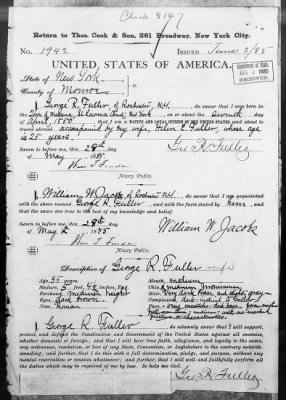 Check 8147
Return to Thos. Cook & Son, 261 Broadway, New York City.
No. 1942 Issued June 2/85
UNITED STATES OF AMERICA.
State of New York
County of Monroe
I, George R. Fuller, of Rochester, N.Y., do swear that I was born in the
on or about the Seventh day
of April, 1850; that I am a NATIVE AND LOYAL CITIZEN OF THE UNITED STATES, and about to
travel abroad, accompanied by my wife, Helen E. Fuller, whose age
is 25 years.
Sworn to before me this 28th day
of May 1885. Geo. R. Fuller
Notary Public.
I, William W. Jacok, of Rochester, N.Y., do swear that I am acquainted
with the above named George R. Fuller, and with the facts stated by him, and
Sworn to before me this 28th day William W. Jacok
of May 1885
Notary Public.
Description of George R. Fuller
Age, 35 years Mouth, medium
Stature, 5 feet, Chin,
Forehead, medium height Hair,
Eyes, dark brown Complexion,
Nose, Roman Face,
I, George R. Fuller do solemnly swear that I will support,
protect, and defend the Constitution and Government of the United States against all enemies,
whether domestic or foreign; and that I will bear true faith, allegiance, and loyalty to the same,
any ordinance, resolution, or law of any State, Convention, or Legislature to the contrary notwith-
standing; and further, that I do this with a full determination, pledge, and purpose, without any
mental reservation or evasion whatsoever; and further, that I will well and faithfully perform all
the duties which may be required of me by law. So help me God.
Geo. R. Fuller